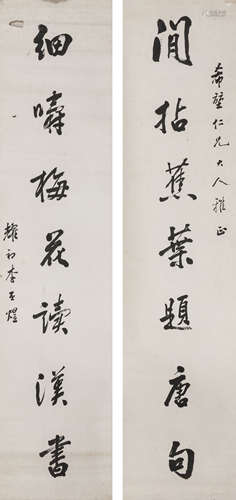 希壁仁兄大人雅正
閒拈蕉葉題唐句
細嚼梅花讀漢書
耀初李